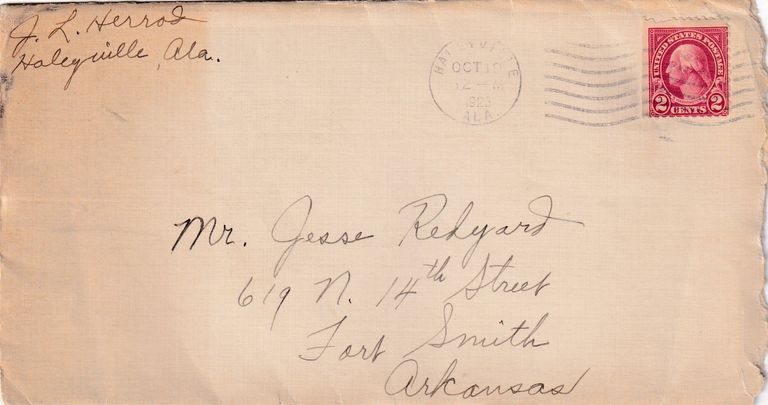 J. L. Herrod
Haleyville, Ala.
HALEYVILLE
OCT 19
12 — M
ALA.
UNITED STATES POSTAGE
2 CENTS 2
Mr. Jesse Redyard
619 N. 14th Street
Fort Smith
Arkansas